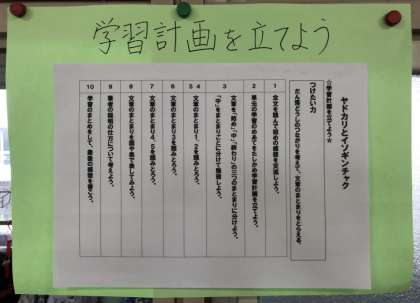 学習計画を立てよう
ヤドカリとイソギンチャク
☆学習計画を立てよう☆
つけたい力
だん落どうしのつながりを考えて、文章のまとまりをとらえる。
1 全文を読んで初めの感想を交流しよう。
2 単元の学習のめあてをたしかめ学習計画を立てよう。
3 文章を、「始め」「中」「終わり」の三つのまとまりに分けよう。
「中」をまとまりごとに分けて整理しよう。
4 文章のまとまり1、2を読みとろう。
5
6 文章のまとまり3を読みとろう。
7 文章のまとまり4、5を読みとろう。
8 文章のまとまりを図や表で表してみよう。
9 筆者の説明の仕方について考えよう。
10 学習のまとめをして、最後の感想を書こう。